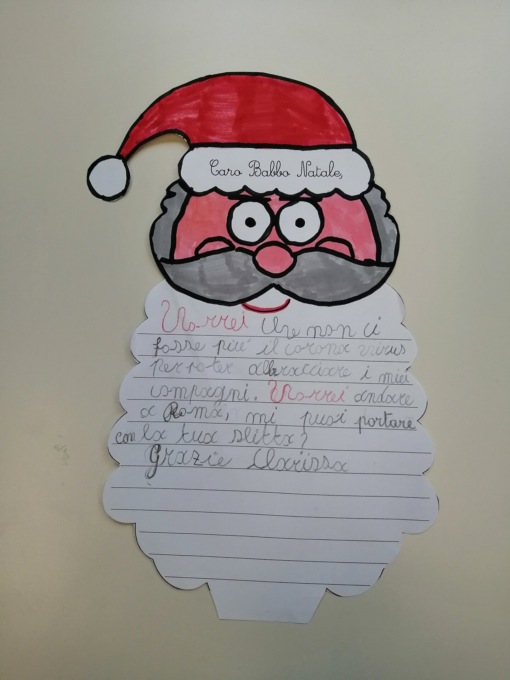 Caro Babbo Natale,
Vorrei che non ci
fosse più il corona virus
per poter abbracciare i miei
compagni. Vorrei andare
a Roma, mi puoi portare
con la tua slitta?
Grazie Clarissa